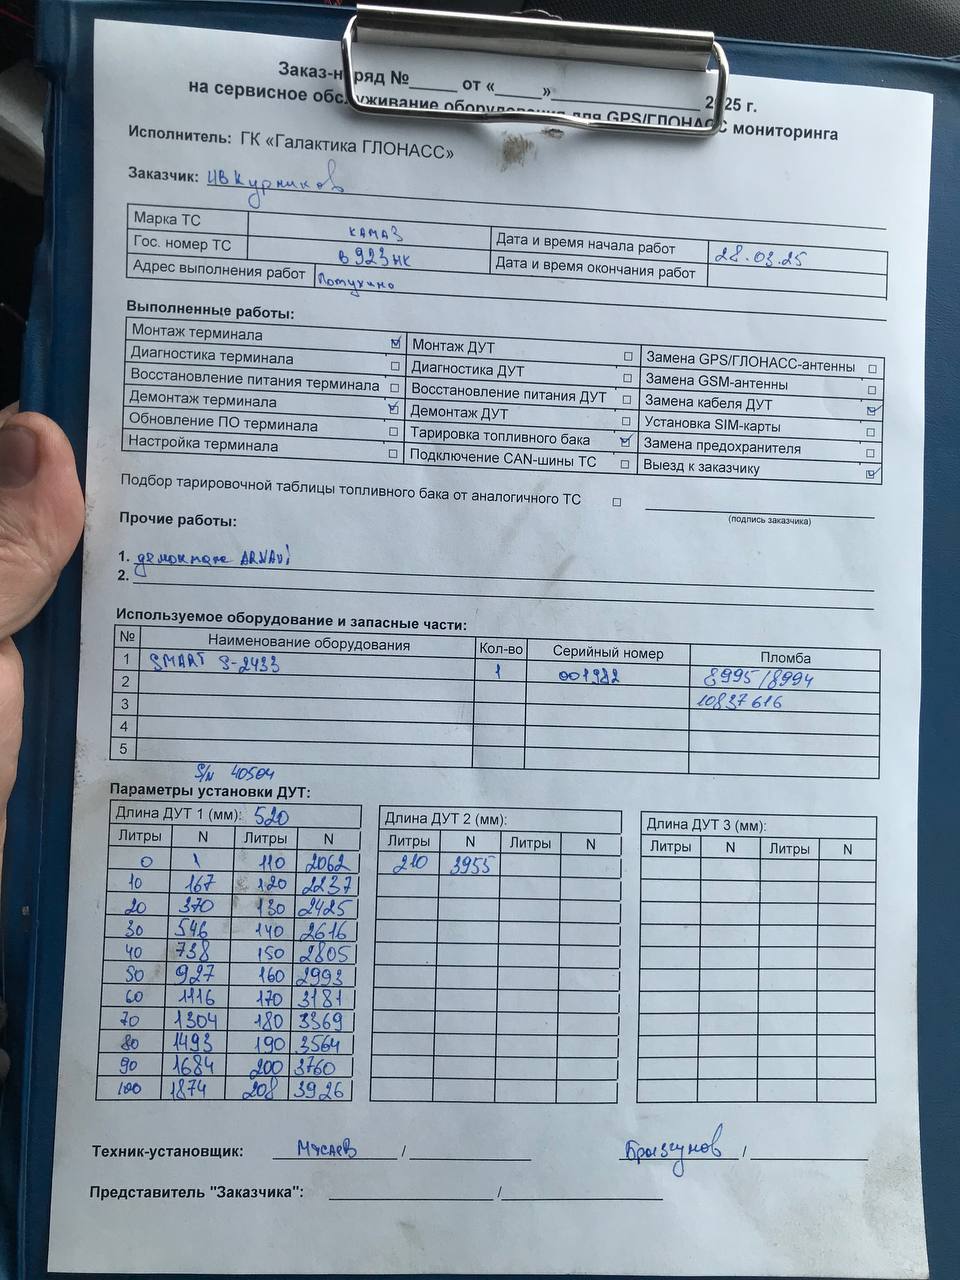 Заказ-наряд №_____ от «_____»________________ 2025 г.
на сервисное обслуживание оборудования для GPS/ГЛОНАСС мониторинга
Исполнитель: ГК «Галактика ГЛОНАСС»
Заказчик: ИВ Курников
Марка ТС КАМАЗ Дата и время начала работ 28.03.25
Гос. номер ТС В923НК Дата и время окончания работ
Адрес выполнения работ
Выполненные работы:
Монтаж терминала ☑ Монтаж ДУТ ☐ Замена GPS/ГЛОНАСС-антенны ☐
Диагностика терминала ☐ Диагностика ДУТ ☐ Замена GSM-антенны ☐
Восстановление питания терминала ☐ Восстановление питания ДУТ ☐ Замена кабеля ДУТ ☑
Демонтаж терминала ☑ Демонтаж ДУТ ☐ Установка SIM-карты ☐
Обновление ПО терминала ☐ Тарировка топливного бака ☑ Замена предохранителя ☐
Настройка терминала ☐ Подключение CAN-шины ТС ☐ Выезд к заказчику ☑
Подбор тарировочной таблицы топливного бака от аналогичного ТС ☐
(подпись заказчика)
Прочие работы:
1. демонтаж ARNAVI
2.
Используемое оборудование и запасные части:
№ Наименование оборудования Кол-во Серийный номер Пломба
1 SMART S-2433 1 001982 8995/8994
2 10837616
3
4
5
S/N 40504
Параметры установки ДУТ:
Длина ДУТ 1 (мм): 520 Длина ДУТ 2 (мм): Длина ДУТ 3 (мм):
Литры N Литры N Литры N Литры N Литры N Литры N
0 1 110 2062 210 3955
10 167 120 2237
20 370 130 2425
30 546 140 2616
40 738 150 2805
50 927 160 2993
60 1116 170 3181
70 1304 180 3369
80 1493 190 3564
90 1684 200 3760
100 1874 208 3926
Техник-установщик: Мусаев / Брызгунов /
Представитель "Заказчика": /